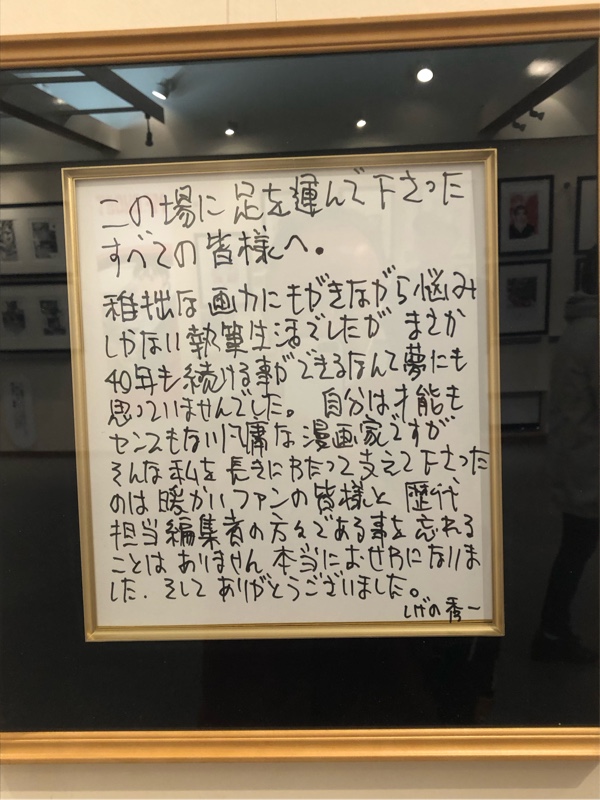 この場に足を運んで下さった
すべての皆様へ.
稚拙な画力にもがきながら悩み
しかない執筆生活でしたが まさか
40年も続ける事ができるなんて夢にも
思っていませんでした。 自分は才能も
センスもない凡庸な漫画家ですが
そんな私を長きにわたって支えて下さった
のは暖かいファンの皆様と 歴代
担当編集者の方々である事を忘れる
ことはありません 本当におせわになりま
した. そしてありがとうございました。
しげの秀一